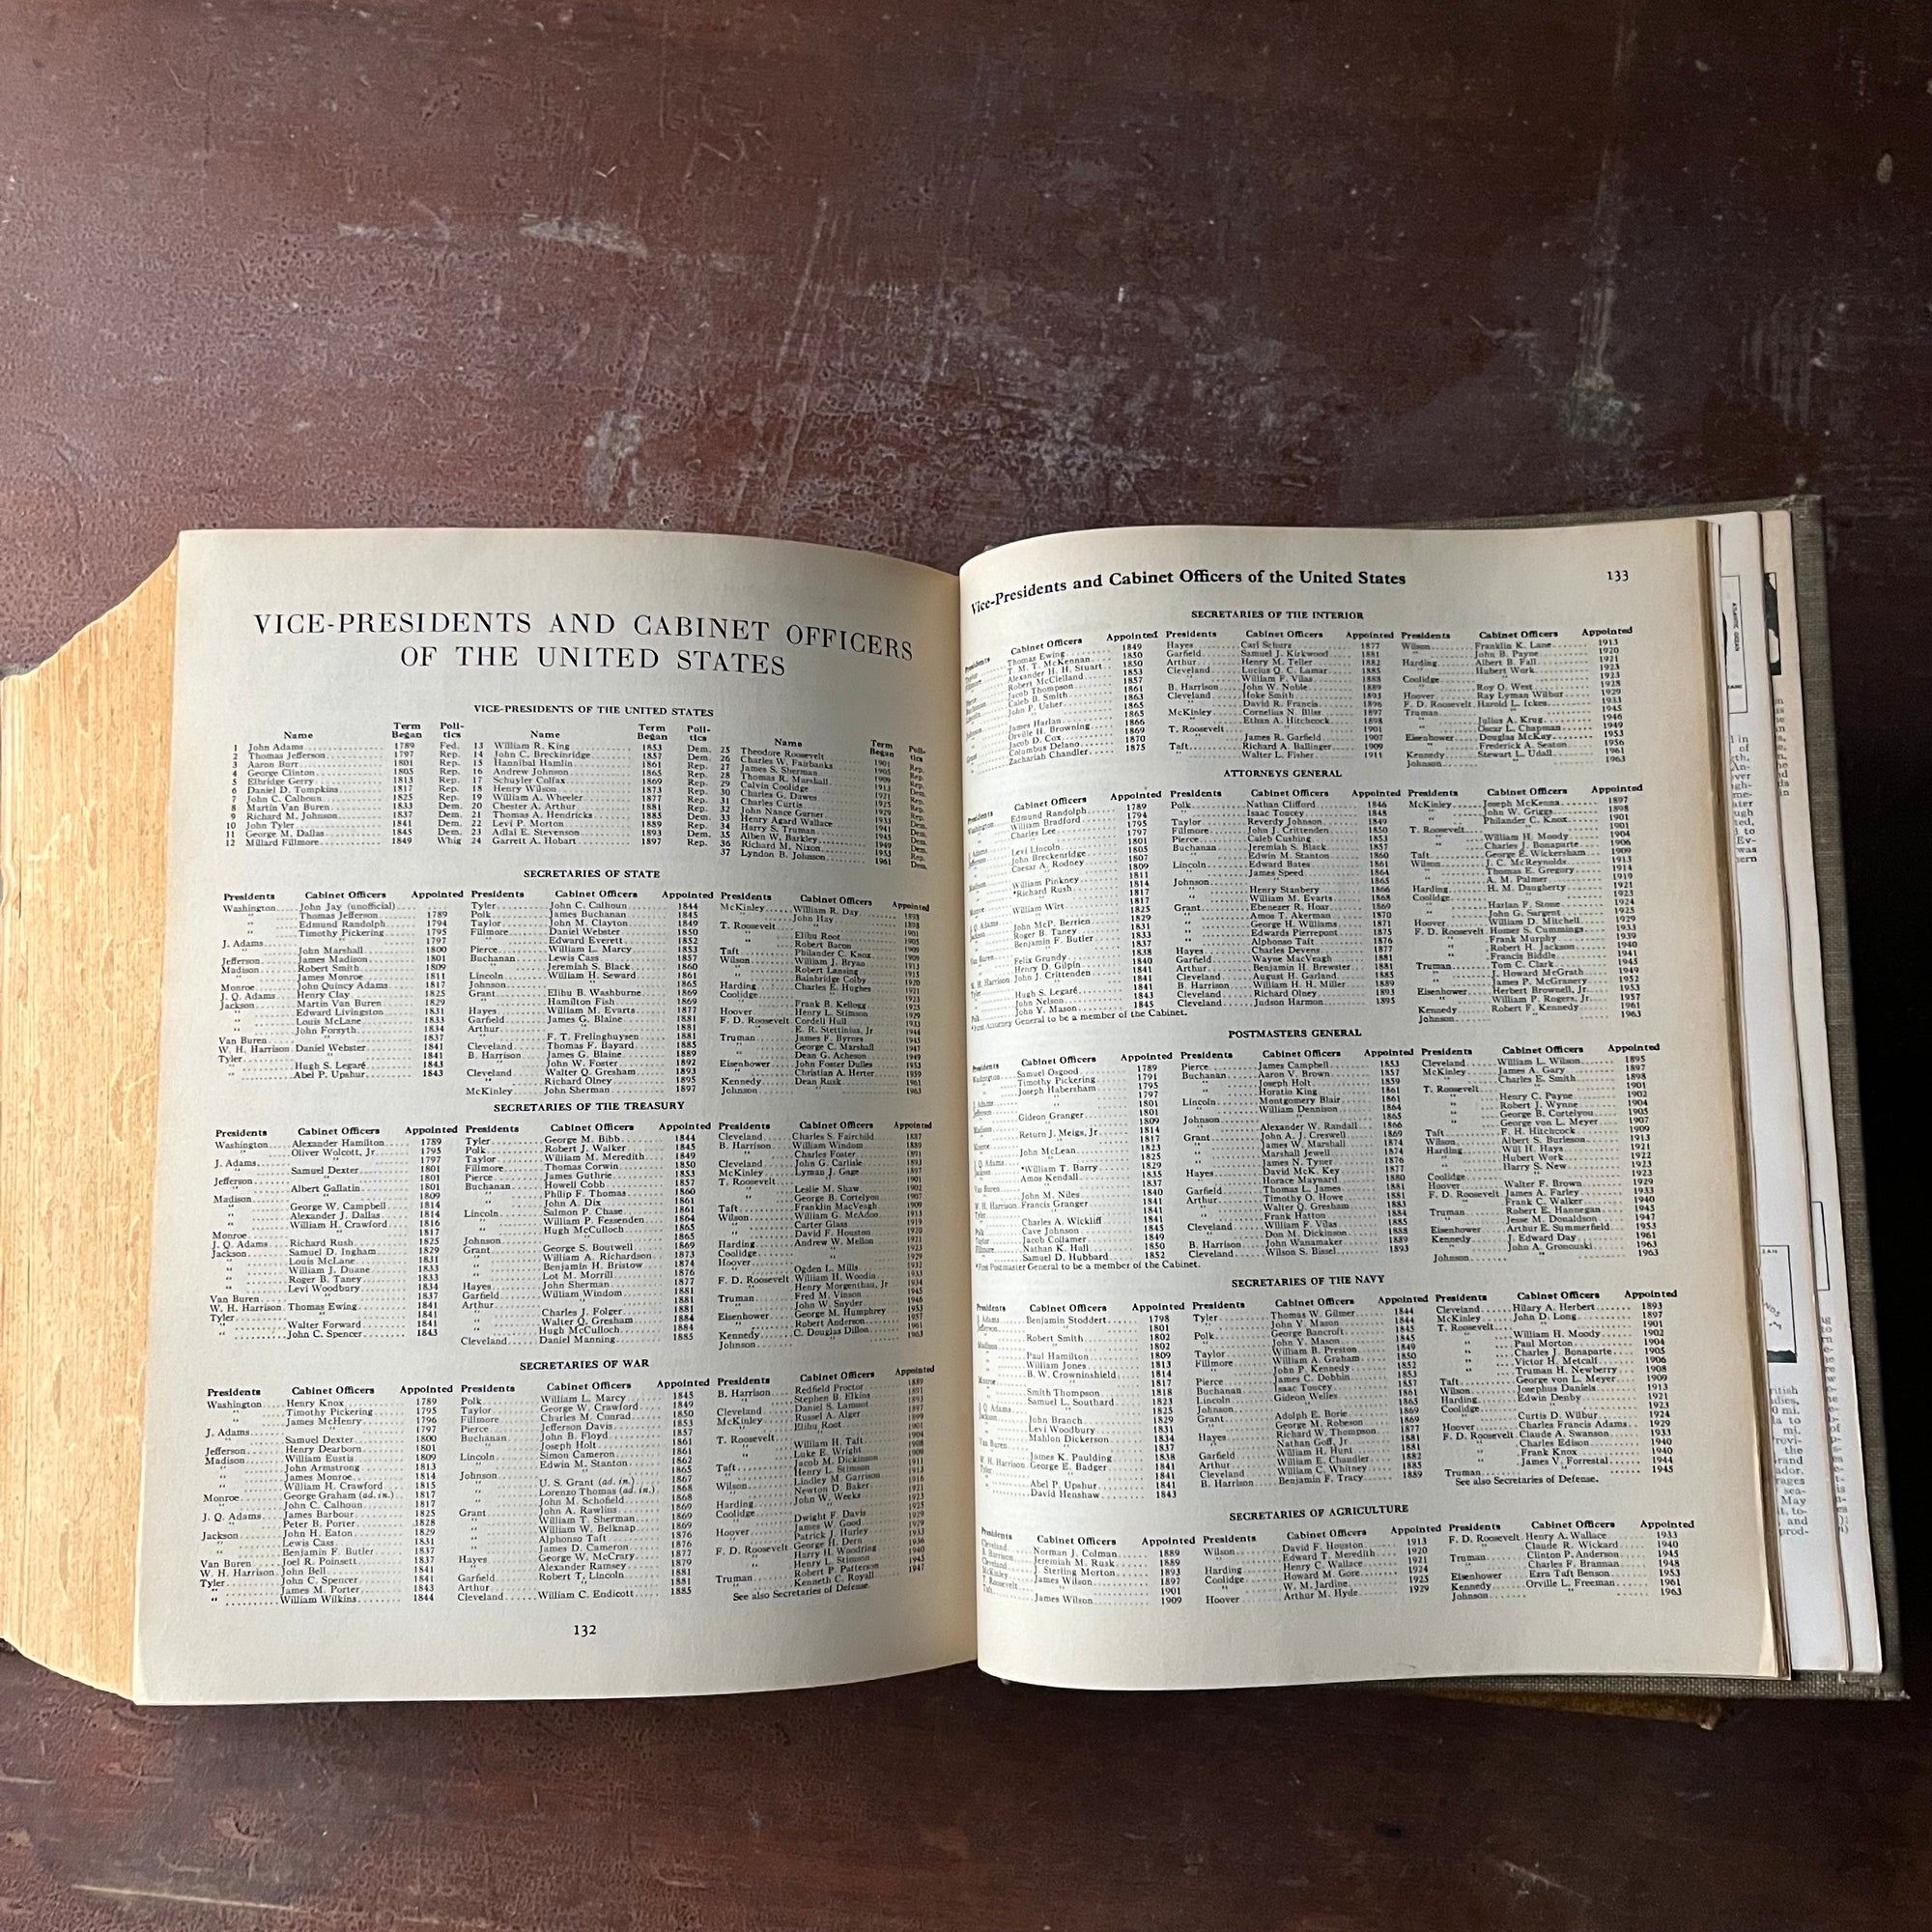 VICE-PRESIDENTS AND CABINET OFFICERS
OF THE UNITED STATES
VICE-PRESIDENTS OF THE UNITED STATES
Name Term Began Poli-tics
1 John Adams 1789 Fed.
2 Thomas Jefferson 1797 Rep.
3 Aaron Burr 1801 Rep.
4 George Clinton 1805 Rep.
5 Elbridge Gerry 1813 Rep.
6 Daniel D. Tompkins 1817 Rep.
7 John C. Calhoun 1825 Rep.
8 Martin Van Buren 1833 Dem.
9 Richard M. Johnson 1837 Dem.
10 John Tyler 1841 Dem.
11 George M. Dallas 1845 Dem.
12 Millard Fillmore 1849 Whig
Name Term Began Poli-tics
13 William R. King 1853 Dem.
14 John C. Breckinridge 1857 Dem.
15 Hannibal Hamlin 1861 Rep.
16 Andrew Johnson 1865 Rep.
17 Schuyler Colfax 1869 Rep.
18 Henry Wilson 1873 Rep.
19 William A. Wheeler 1877 Rep.
20 Chester A. Arthur 1881 Rep.
21 Thomas A. Hendricks 1885 Dem.
22 Levi P. Morton 1889 Rep.
23 Adlai E. Stevenson 1893 Dem.
24 Garrett A. Hobart 1897 Rep.
Name Term Began Poli-tics
25 Theodore Roosevelt 1901 Rep.
26 Charles W. Fairbanks 1905 Rep.
27 James S. Sherman 1909 Rep.
28 Thomas R. Marshall 1913 Dem.
29 Calvin Coolidge 1921 Rep.
30 Charles G. Dawes 1925 Rep.
31 Charles Curtis 1929 Rep.
32 John Nance Garner 1933 Dem.
33 Henry Agard Wallace 1941 Dem.
34 Harry S. Truman 1945 Dem.
35 Alben W. Barkley 1949 Dem.
36 Richard M. Nixon 1953 Rep.
37 Lyndon B. Johnson 1961 Dem.
SECRETARIES OF STATE
Presidents Cabinet Officers Appointed
Washington John Jay (unofficial)
" Thomas Jefferson 1789
" Edmund Randolph 1794
" Timothy Pickering 1795
J. Adams " 1797
" John Marshall 1800
Jefferson James Madison 1801
Madison Robert Smith 1809
" James Monroe 1811
Monroe John Quincy Adams 1817
J. Q. Adams Henry Clay 1825
Jackson Martin Van Buren 1829
" Edward Livingston 1831
" Louis McLane 1833
" John Forsyth 1834
Van Buren " 1837
W. H. Harrison Daniel Webster 1841
Tyler " 1841
" Hugh S. Legaré 1843
" Abel P. Upshur 1843
Presidents Cabinet Officers Appointed
Tyler John C. Calhoun 1844
Polk James Buchanan 1845
Taylor John M. Clayton 1849
Fillmore Daniel Webster 1850
" Edward Everett 1852
Pierce William L. Marcy 1853
Buchanan Lewis Cass 1857
" Jeremiah S. Black 1860
Lincoln William H. Seward 1861
Johnson " 1865
Grant Elihu B. Washburne 1869
" Hamilton Fish 1869
Hayes William M. Evarts 1877
Garfield James G. Blaine 1881
Arthur " 1881
" F. T. Frelinghuysen 1881
Cleveland Thomas F. Bayard 1885
B. Harrison James G. Blaine 1889
" John W. Foster 1892
Cleveland Walter Q. Gresham 1893
" Richard Olney 1895
McKinley John Sherman 1897
Presidents Cabinet Officers Appointed
McKinley William R. Day 1898
" John Hay 1898
T. Roosevelt " 1901
" Elihu Root 1905
" Robert Bacon 1909
Taft Philander C. Knox 1909
Wilson William J. Bryan 1913
" Robert Lansing 1915
" Bainbridge Colby 1920
Harding Charles E. Hughes 1921
Coolidge " 1923
" Frank B. Kellogg 1925
Hoover Henry L. Stimson 1929
F. D. Roosevelt Cordell Hull 1933
" E. R. Stettinius, Jr 1944
Truman James F. Byrnes 1945
" George C. Marshall 1947
" Dean G. Acheson 1949
Eisenhower John Foster Dulles 1953
" Christian A. Herter 1959
Kennedy Dean Rusk 1961
Johnson " 1963
SECRETARIES OF THE TREASURY
Presidents Cabinet Officers Appointed
Washington Alexander Hamilton 1789
" Oliver Wolcott, Jr 1795
J. Adams " 1797
" Samuel Dexter 1801
Jefferson " 1801
" Albert Gallatin 1801
Madison " 1809
" George W. Campbell 1814
" Alexander J. Dallas 1814
" William H. Crawford 1816
Monroe " 1817
J. Q. Adams Richard Rush 1825
Jackson Samuel D. Ingham 1829
" Louis McLane 1831
" William J. Duane 1833
" Roger B. Taney 1833
" Levi Woodbury 1834
Van Buren " 1837
W. H. Harrison Thomas Ewing 1841
Tyler " 1841
" Walter Forward 1841
" John C. Spencer 1843
Presidents Cabinet Officers Appointed
Tyler George M. Bibb 1844
Polk Robert J. Walker 1845
Taylor William M. Meredith 1849
Fillmore Thomas Corwin 1850
Pierce James Guthrie 1853
Buchanan Howell Cobb 1857
" Philip F. Thomas 1860
" John A. Dix 1861
Lincoln Salmon P. Chase 1861
" William P. Fessenden 1864
" Hugh McCulloch 1865
Johnson " 1865
Grant George S. Boutwell 1869
" William A. Richardson 1873
" Benjamin H. Bristow 1874
" Lot M. Morrill 1876
Hayes John Sherman 1877
Garfield William Windom 1881
Arthur " 1881
" Charles J. Folger 1881
" Walter Q. Gresham 1884
" Hugh McCulloch 1884
Cleveland Daniel Manning 1885
Presidents Cabinet Officers Appointed
Cleveland Charles S. Fairchild 1887
B. Harrison William Windom 1889
" Charles Foster 1891
Cleveland John G. Carlisle 1893
McKinley Lyman J. Gage 1897
T. Roosevelt " 1901
" Leslie M. Shaw 1902
" George B. Cortelyou 1907
Taft Franklin MacVeagh 1909
Wilson William G. McAdoo 1913
" Carter Glass 1918
" David F. Houston 1920
Harding Andrew W. Mellon 1921
Coolidge " 1923
Hoover " 1929
" Ogden L. Mills 1932
F. D. Roosevelt William H. Woodin 1933
" Henry Morgenthau, Jr 1934
Truman Fred M. Vinson 1945
" John W. Snyder 1946
Eisenhower George M. Humphrey 1953
" Robert Anderson 1957
Kennedy C. Douglas Dillon 1961
Johnson " 1963
SECRETARIES OF WAR
Presidents Cabinet Officers Appointed
Washington Henry Knox 1789
" Timothy Pickering 1795
" James McHenry 1796
J. Adams " 1797
" Samuel Dexter 1800
Jefferson Henry Dearborn 1801
Madison William Eustis 1809
" John Armstrong 1813
" James Monroe 1814
" William H. Crawford 1815
Monroe George Graham (ad. in.) 1817
" John C. Calhoun 1817
J. Q. Adams James Barbour 1825
" Peter B. Porter 1828
Jackson John H. Eaton 1829
" Lewis Cass 1831
" Benjamin F. Butler 1837
Van Buren Joel R. Poinsett 1837
W. H. Harrison John Bell 1841
Tyler John C. Spencer 1841
" James M. Porter 1843
" William Wilkins 1844
Presidents Cabinet Officers Appointed
Polk William L. Marcy 1845
Taylor George W. Crawford 1849
Fillmore Charles M. Conrad 1850
Pierce Jefferson Davis 1853
Buchanan John B. Floyd 1857
" Joseph Holt 1861
Lincoln Simon Cameron 1861
" Edwin M. Stanton 1862
Johnson " 1865
" U. S. Grant (ad. in.) 1867
" Lorenzo Thomas (ad. in.) 1868
" John M. Schofield 1868
Grant John A. Rawlins 1869
" William T. Sherman 1869
" William W. Belknap 1869
" Alphonso Taft 1876
" James D. Cameron 1876
Hayes George W. McCrary 1877
" Alexander Ramsey 1879
Garfield Robert T. Lincoln 1881
Arthur " 1881
Cleveland William C. Endicott 1885
Presidents Cabinet Officers Appointed
B. Harrison Redfield Proctor 1889
" Stephen B. Elkins 1891
Cleveland Daniel S. Lamont 1893
McKinley Russel A. Alger 1897
" Elihu Root 1899
T. Roosevelt " 1901
" William H. Taft 1904
" Luke E. Wright 1908
Taft Jacob M. Dickinson 1909
" Henry L. Stimson 1911
Wilson Lindley M. Garrison 1913
" Newton D. Baker 1916
Harding John W. Weeks 1921
Coolidge " 1923
" Dwight F. Davis 1925
Hoover James W. Good 1929
" Patrick J. Hurley 1929
F. D. Roosevelt George H. Dern 1933
" Harry H. Woodring 1936
" Henry L. Stimson 1940
Truman Robert P. Patterson 1945
" Kenneth C. Royall 1947
See also Secretaries of Defense.
132
Vice-Presidents and Cabinet Officers of the United States 133
SECRETARIES OF THE INTERIOR
Presidents Cabinet Officers Appointed
Taylor Thomas Ewing 1849
Fillmore T. M. T. McKennan 1850
" Alexander H. H. Stuart 1850
Pierce Robert McClelland 1853
Buchanan Jacob Thompson 1857
Lincoln Caleb B. Smith 1861
" John P. Usher 1863
Johnson " 1865
" James Harlan 1865
" Orville H. Browning 1866
Grant Jacob D. Cox 1869
" Columbus Delano 1870
" Zachariah Chandler 1875
Presidents Cabinet Officers Appointed
Hayes Carl Schurz 1877
Garfield Samuel J. Kirkwood 1881
Arthur Henry M. Teller 1882
Cleveland Lucius Q. C. Lamar 1885
" William F. Vilas 1888
B. Harrison John W. Noble 1889
Cleveland Hoke Smith 1893
" David R. Francis 1896
McKinley Cornelius N. Bliss 1897
" Ethan A. Hitchcock 1898
T. Roosevelt " 1901
" James R. Garfield 1907
Taft Richard A. Ballinger 1909
" Walter L. Fisher 1911
Presidents Cabinet Officers Appointed
Wilson Franklin K. Lane 1913
" John B. Payne 1920
Harding Albert B. Fall 1921
" Hubert Work 1923
Coolidge " 1923
" Roy O. West 1928
Hoover Ray Lyman Wilbur 1929
F. D. Roosevelt Harold L. Ickes 1933
Truman " 1945
" Julius A. Krug 1946
" Oscar L. Chapman 1949
Eisenhower Douglas McKay 1953
" Frederick A. Seaton 1956
Kennedy Stewart L. Udall 1961
Johnson " 1963
ATTORNEYS GENERAL
Presidents Cabinet Officers Appointed
Washington Edmund Randolph 1789
" William Bradford 1794
" Charles Lee 1795
J. Adams " 1797
Jefferson Levi Lincoln 1801
" John Breckenridge 1805
" Caesar A. Rodney 1807
Madison " 1809
" William Pinkney 1811
" *Richard Rush 1814
Monroe " 1817
" William Wirt 1817
J. Q. Adams " 1825
Jackson John McP. Berrien 1829
" Roger B. Taney 1831
" Benjamin F. Butler 1833
Van Buren " 1837
" Felix Grundy 1838
" Henry D. Gilpin 1840
W. H. Harrison John J. Crittenden 1841
Tyler " 1841
" Hugh S. Legaré 1841
" John Nelson 1843
Polk John Y. Mason 1845
*First Attorney General to be a member of the Cabinet.
Presidents Cabinet Officers Appointed
Polk Nathan Clifford 1846
" Isaac Toucey 1848
Taylor Reverdy Johnson 1849
Fillmore John J. Crittenden 1850
Pierce Caleb Cushing 1853
Buchanan Jeremiah S. Black 1857
" Edwin M. Stanton 1860
Lincoln Edward Bates 1861
" James Speed 1864
Johnson " 1865
" Henry Stanbery 1866
" William M. Evarts 1868
Grant Ebenezer R. Hoar 1869
" Amos T. Akerman 1870
" George H. Williams 1871
" Edwards Pierrepont 1875
" Alphonso Taft 1876
Hayes Charles Devens 1877
Garfield Wayne MacVeagh 1881
Arthur Benjamin H. Brewster 1881
Cleveland August H. Garland 1885
B. Harrison William H. H. Miller 1889
Cleveland Richard Olney 1893
Cleveland Judson Harmon 1895
Presidents Cabinet Officers Appointed
McKinley Joseph McKenna 1897
" John W. Griggs 1898
" Philander C. Knox 1901
T. Roosevelt " 1901
" William H. Moody 1904
" Charles J. Bonaparte 1906
Taft George E. Wickersham 1909
Wilson J. C. McReynolds 1913
" Thomas E. Gregory 1914
" A. M. Palmer 1919
Harding H. M. Daugherty 1921
Coolidge " 1923
" Harlan F. Stone 1924
" John G. Sargent 1925
Hoover William D. Mitchell 1929
F. D. Roosevelt Homer S. Cummings 1933
" Frank Murphy 1939
" Robert H. Jackson 1940
" Francis Biddle 1941
Truman Tom C. Clark 1945
" J. Howard McGrath 1949
" James P. McGranery 1952
Eisenhower Herbert Brownell, Jr 1953
" William P. Rogers, Jr 1957
Kennedy Robert F. Kennedy 1961
Johnson " 1963
POSTMASTERS GENERAL
Presidents Cabinet Officers Appointed
Washington Samuel Osgood 1789
" Timothy Pickering 1791
" Joseph Habersham 1795
J. Adams " 1797
Jefferson " 1801
" Gideon Granger 1801
Madison " 1809
" Return J. Meigs, Jr 1814
Monroe " 1817
" John McLean 1823
J. Q. Adams " 1825
Jackson *William T. Barry 1829
" Amos Kendall 1835
Van Buren " 1837
" John M. Niles 1840
W. H. Harrison Francis Granger 1841
Tyler " 1841
" Charles A. Wickliff 1841
Polk Cave Johnson 1845
Taylor Jacob Collamer 1849
Fillmore Nathan K. Hall 1850
" Samuel D. Hubbard 1852
*First Postmaster General to be a member of the Cabinet.
Presidents Cabinet Officers Appointed
Pierce James Campbell 1853
Buchanan Aaron V. Brown 1857
" Joseph Holt 1859
" Horatio King 1861
Lincoln Montgomery Blair 1861
" William Dennison 1864
Johnson " 1865
" Alexander W. Randall 1866
Grant John A. J. Creswell 1869
" James W. Marshall 1874
" Marshall Jewell 1874
" James N. Tyner 1876
Hayes David McK. Key 1877
" Horace Maynard 1880
Garfield Thomas L. James 1881
Arthur Timothy O. Howe 1881
" Walter Q. Gresham 1883
" Frank Hatton 1884
Cleveland William F. Vilas 1885
" Don M. Dickinson 1888
B. Harrison John Wanamaker 1889
Cleveland Wilson S. Bissel 1893
Presidents Cabinet Officers Appointed
Cleveland William L. Wilson 1895
McKinley James A. Gary 1897
" Charles E. Smith 1898
T. Roosevelt " 1901
" Henry C. Payne 1902
" Robert J. Wynne 1904
" George B. Cortelyou 1905
" George von L. Meyer 1907
Taft F. H. Hitchcock 1909
Wilson Albert S. Burleson 1913
Harding Will H. Hays 1921
" Hubert Work 1922
" Harry S. New 1923
Coolidge " 1923
Hoover Walter F. Brown 1929
F. D. Roosevelt James A. Farley 1933
" Frank C. Walker 1940
Truman Robert E. Hannegan 1945
" Jesse M. Donaldson 1947
Eisenhower Arthur E. Summerfield 1953
Kennedy J. Edward Day 1961
" John A. Gronouski 1963
Johnson " 1963
SECRETARIES OF THE NAVY
Presidents Cabinet Officers Appointed
J. Adams Benjamin Stoddert 1798
Jefferson " 1801
" Robert Smith 1802
Madison Paul Hamilton 1809
" William Jones 1813
" B. W. Crowninshield 1814
Monroe " 1817
" Smith Thompson 1818
" Samuel L. Southard 1823
J. Q. Adams " 1825
Jackson John Branch 1829
" Levi Woodbury 1831
" Mahlon Dickerson 1834
Van Buren " 1837
" James K. Paulding 1838
W. H. Harrison George E. Badger 1841
Tyler " 1841
" Abel P. Upshur 1841
" David Henshaw 1843
Presidents Cabinet Officers Appointed
Tyler Thomas W. Gilmer 1844
" John Y. Mason 1844
Polk George Bancroft 1845
" John Y. Mason 1845
Taylor William B. Preston 1849
Fillmore William A. Graham 1850
" John P. Kennedy 1852
Pierce James C. Dobbin 1853
Buchanan Isaac Toucey 1857
Lincoln Gideon Welles 1861
Johnson " 1865
Grant Adolph E. Borie 1869
" George M. Robeson 1869
Hayes Richard W. Thompson 1877
" Nathan Goff, Jr 1881
Garfield William H. Hunt 1881
Arthur William E. Chandler 1882
Cleveland William C. Whitney 1885
B. Harrison Benjamin F. Tracy 1889
Presidents Cabinet Officers Appointed
Cleveland Hilary A. Herbert 1893
McKinley John D. Long 1897
T. Roosevelt " 1901
" William H. Moody 1902
" Paul Morton 1904
" Charles J. Bonaparte 1905
" Victor H. Metcalf 1906
" Truman H. Newberry 1908
Taft George von L. Meyer 1909
Wilson Josephus Daniels 1913
Harding Edwin Denby 1921
Coolidge " 1923
" Curtis D. Wilbur 1924
Hoover Charles Francis Adams 1929
F. D. Roosevelt Claude A. Swanson 1933
" Charles Edison 1940
" Frank Knox 1940
" James V. Forrestal 1944
Truman " 1945
See also Secretaries of Defense.
SECRETARIES OF AGRICULTURE
Presidents Cabinet Officers Appointed
Cleveland Norman J. Colman 1889
B. Harrison Jeremiah M. Rusk 1889
Cleveland J. Sterling Morton 1893
McKinley James Wilson 1897
T. Roosevelt " 1901
Taft James Wilson 1909
Presidents Cabinet Officers Appointed
Wilson David F. Houston 1913
" Edward T. Meredith 1920
Harding Henry C. Wallace 1921
Coolidge Howard M. Gore 1924
" W. M. Jardine 1925
Hoover Arthur M. Hyde 1929
Presidents Cabinet Officers Appointed
F. D. Roosevelt Henry A. Wallace 1933
" Claude R. Wickard 1940
Truman Clinton P. Anderson 1945
" Charles F. Brannan 1948
Eisenhower Ezra Taft Benson 1953
Kennedy Orville L. Freeman 1961
Johnson " 1963